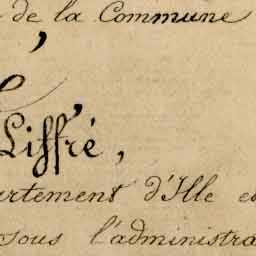 de la Commune
,
Liffré,
artement d'Ille e
sous l'administra